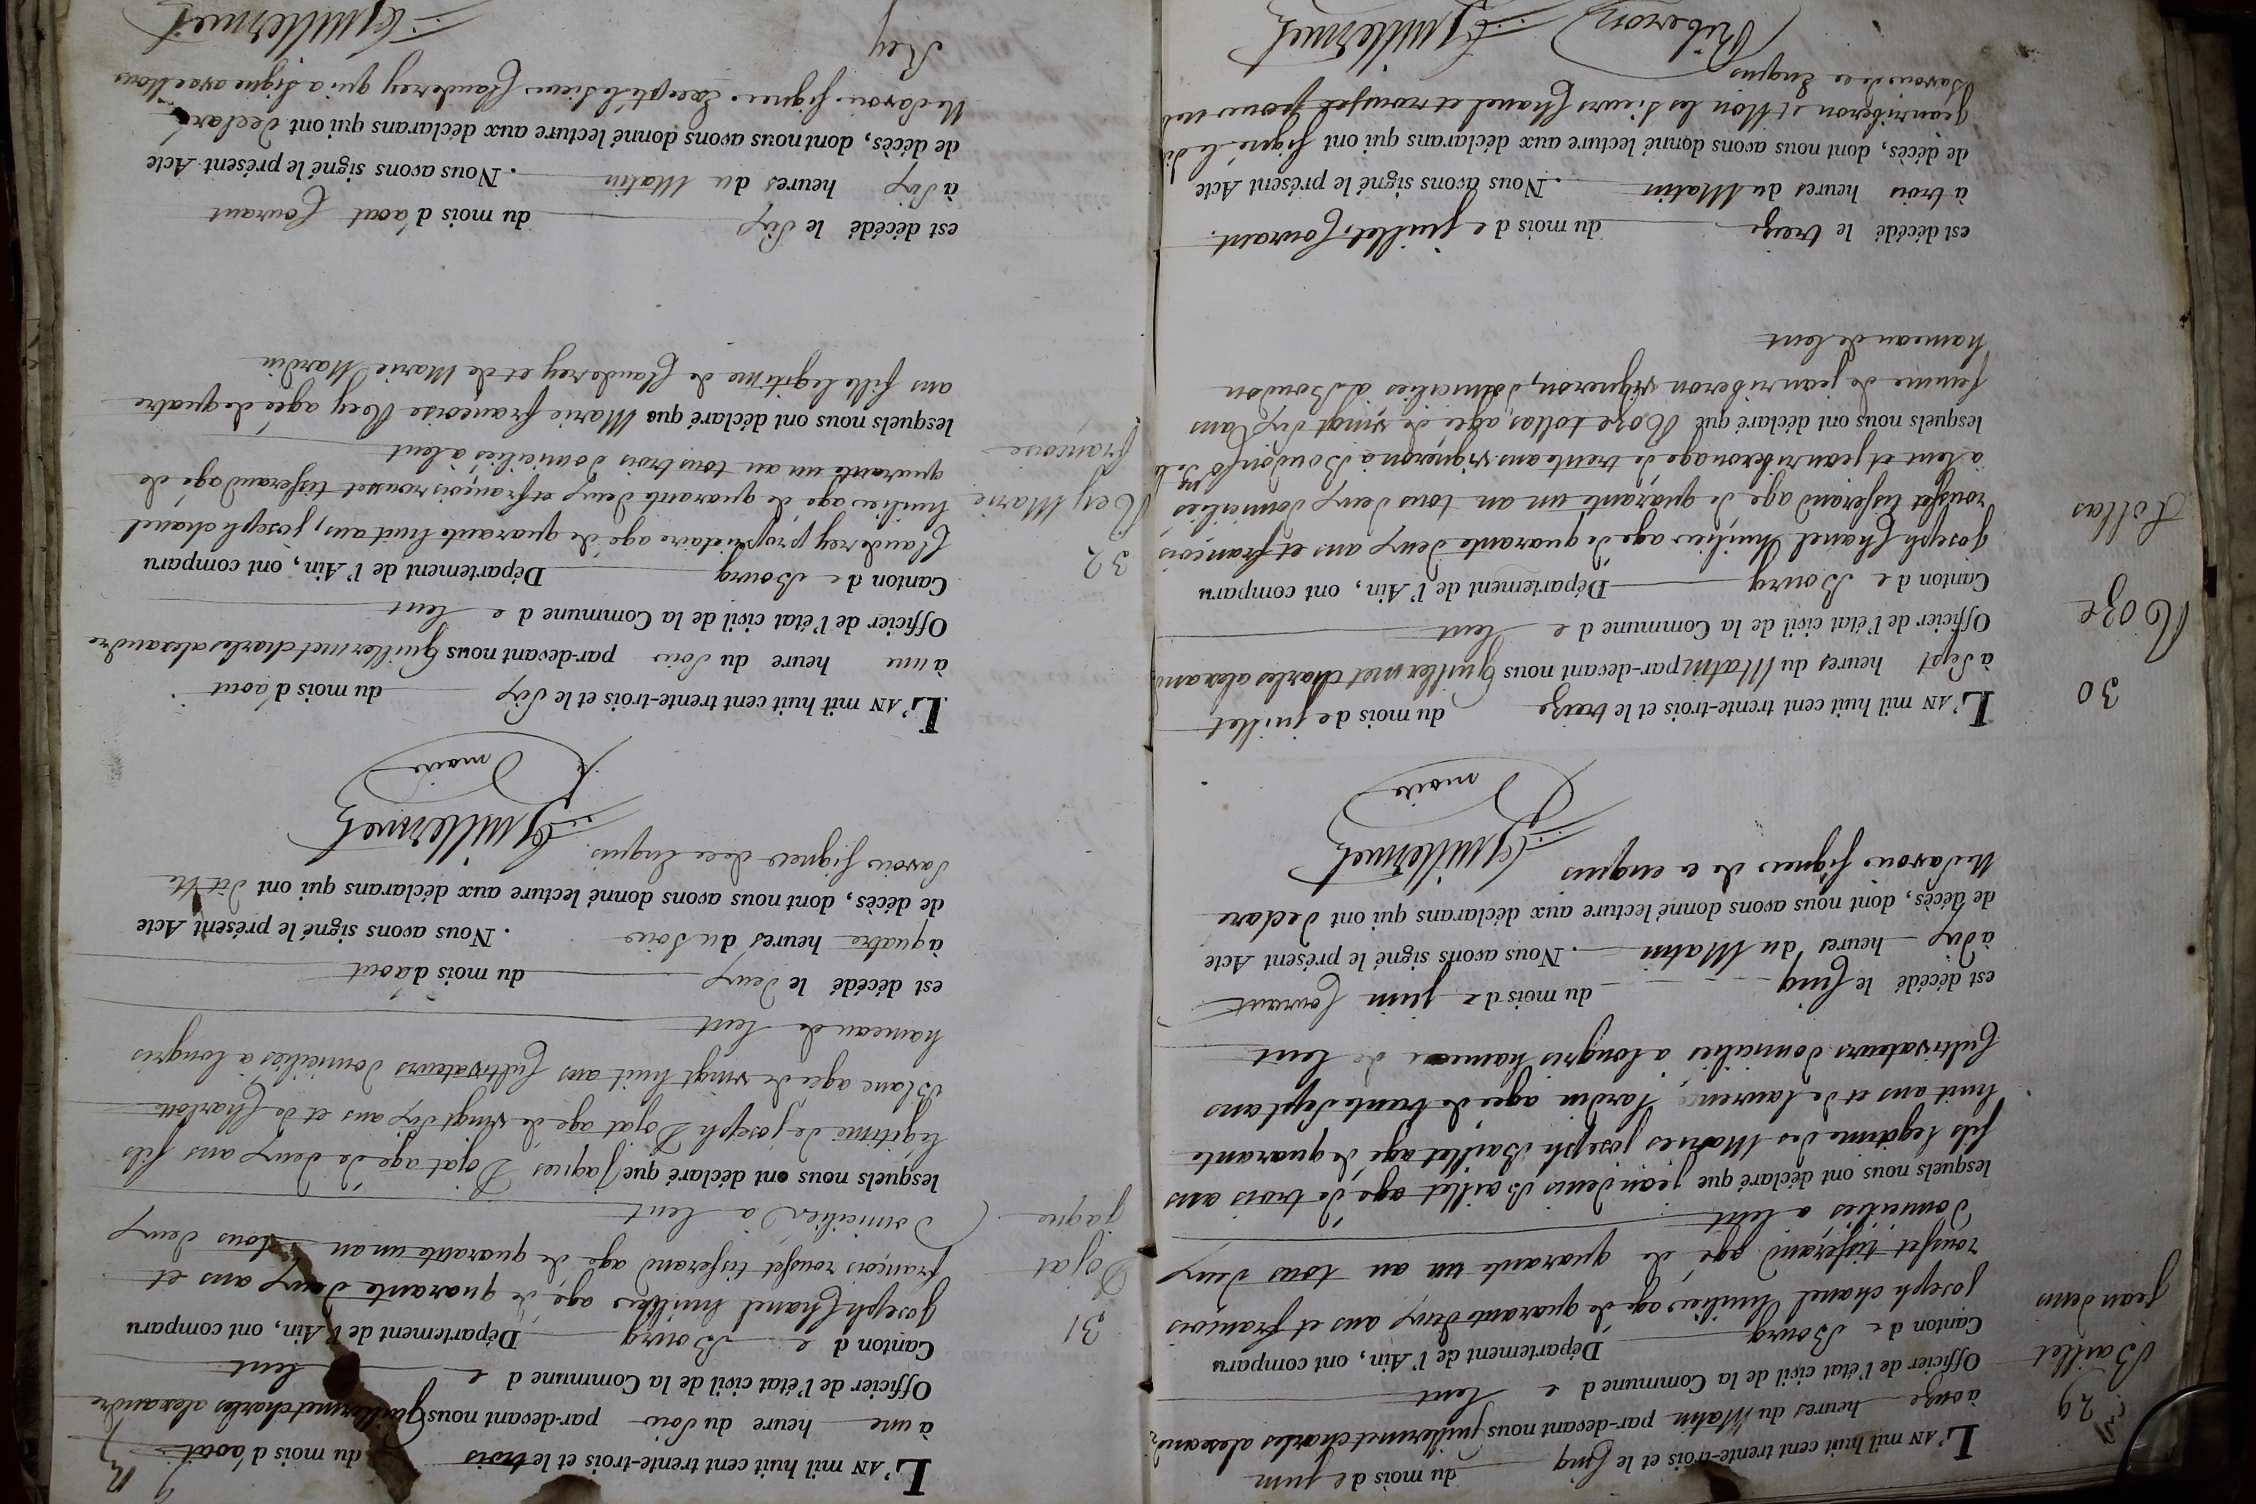 29
Baillet
jean denis
L'AN mil huit cent trente-trois et le Cinq du mois de juin
à onze heures du Matin par-devant nous guillermet charles alexand
Officier de l'état civil de la Commune de lent
Canton de Bourg Département de l'Ain, ont comparu
joseph chanel huilier agé de quarante deux ans et francois
rousset tisserand agé de quarante un an tous deux
domicilies a lent
lesquels nous ont déclaré que jean denis Baillet agé de trois ans
fils legitime des Maries joseph Baillet agé de quarante
huit ans et de laurence Tardin agée de trente sept ans
Cultivateurs domicilies à longris hameau de lent
est décédé le Cinq du mois de juin Courant
à dix heures du Matin. Nous avons signé le présent Acte
de décès, dont nous avons donné lecture aux déclarans qui ont declare
Ne savoir signer de ce enquis
Guillermet
maire
30
Roze
Tollas
L'AN mil huit cent trente-trois et le treize du mois de juillet
à Sept heures du Matin par-devant nous Guillermet charles alexand
Officier de l'état civil de la Commune de lent
Canton de Bourg Département de l'Ain, ont comparu
joseph Chanel huilier agé de quarante deux ans et françois
rousset tisserand agé de quarante un an tous deux domiciliés
à lent et jean riberon agé de trente ans vigneron a Boudon
lesquels nous ont déclaré que Roze tollas agée de vingt dix ans
femme de jean riberon vigneron, domicilies a Boudon
hameau de lent
est décédé le treize du mois de juillet Courant.
à trois heures du Matin. Nous avons signé le présent Acte
de décès, dont nous avons donné lecture aux déclarans qui ont signé le dit
jean riberon et Non les sieurs Chanel et rousset pour ne
Savoir de ce Enquis
Riberon Guillermet
31
Dojat
jaque
L'AN mil huit cent trente-trois et le trois du mois d'aout
à une heure du Soir par-devant nous Guillermet charles alexandre
Officier de l'état civil de la Commune de lent
Canton de Bourg Département de l'Ain, ont comparu
Joseph Chanel huillier agé de quarante deux ans et
françois rousset tisserand agé de quarante un an tous deux
domiciliés à lent
lesquels nous ont déclaré que Jaques Dojat agé de deux ans fils
legitime de joseph Dojat agé de vingt dix ans et de Charlotte
Blanc agée de vingt huit ans Cultivateurs domicilies à longris
hameau de lent
est décédé le deux du mois d'aout
à quatre heures du Soir. Nous avons signé le présent Acte
de décès, dont nous avons donné lecture aux déclarans qui ont dit Ne
Savoir signer de ce Enquis.
Guillermet
maire
32
Rey Marie
françoise
L'AN mil huit cent trente-trois et le Dix du mois d'aout
à une heure du Soir par-devant nous Guillermet charles alexandre
Officier de l'état civil de la Commune de lent
Canton de Bourg Département de l'Ain, ont comparu
Claude rey propriétaire agé de quarante huit ans, joseph chanel
huilier agé de quarante deux et françois rousset tisserand agé de
quarante un an tous trois domiciliés à lent
lesquels nous ont déclaré que Marie françoise Rey agée de quatre
ans fille legitime de Claude rey et de Marie Mardin
est décédé le Dix du mois d'aout Courant
à Dix heures du Matin. Nous avons signé le présent Acte
de décès, dont nous avons donné lecture aux déclarans qui ont déclaré
Ne Savoir signer. Excepté le sieur Claude rey qui a signé avec Nous
Rey Guillermet